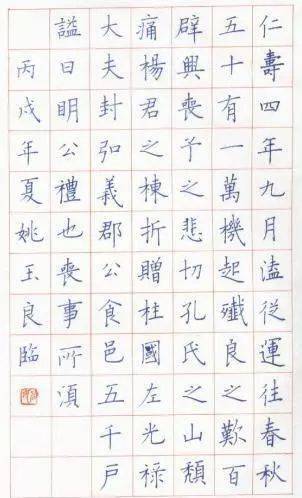 仁壽四年九月溘從運往春秋
五十有一萬機起殲良之歎百
辟興喪予之悲切孔氏之山頹
痛楊君之棟折贈柱國左光祿
大夫封弘義郡公食邑五千戶
謚曰明公禮也喪事所湏
丙戌年夏姚玉良臨